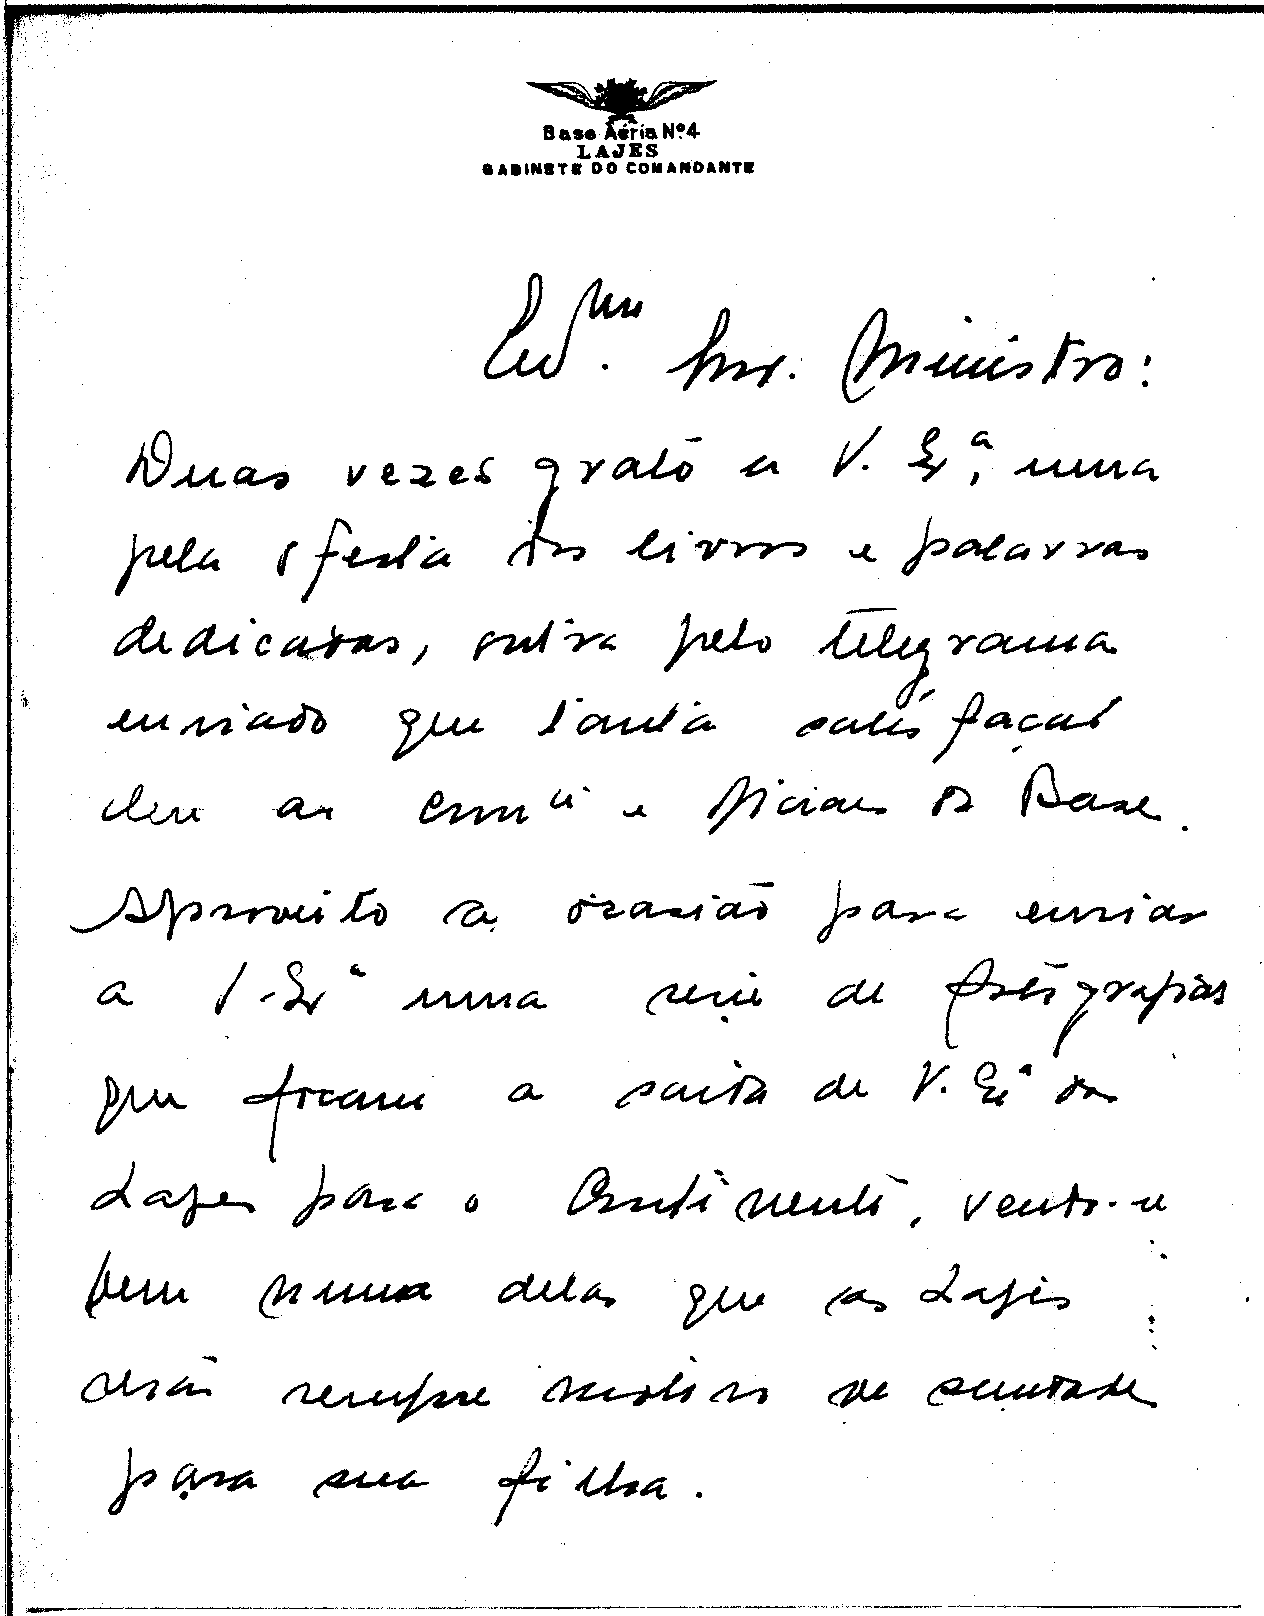 Base Aéria Nº4
LAJES
GABINETE DO COMANDANTE
Exmo. Snr. Ministro:
Duas vezes grato a V. Exª, uma
pela oferta dos livros e palavras
dedicadas, outra pelo telegrama
enviado que tanta satisfação
deu ao e oficiais da Base.
Aproveito a ocasião para enviar
a V. Exª uma serie de fotografias
que focam a saida de V. Exª das
Lajes para o Continente, vendo-se
bem numa delas que as Lajes
serão sempre motivo de saudade
para sua filha.